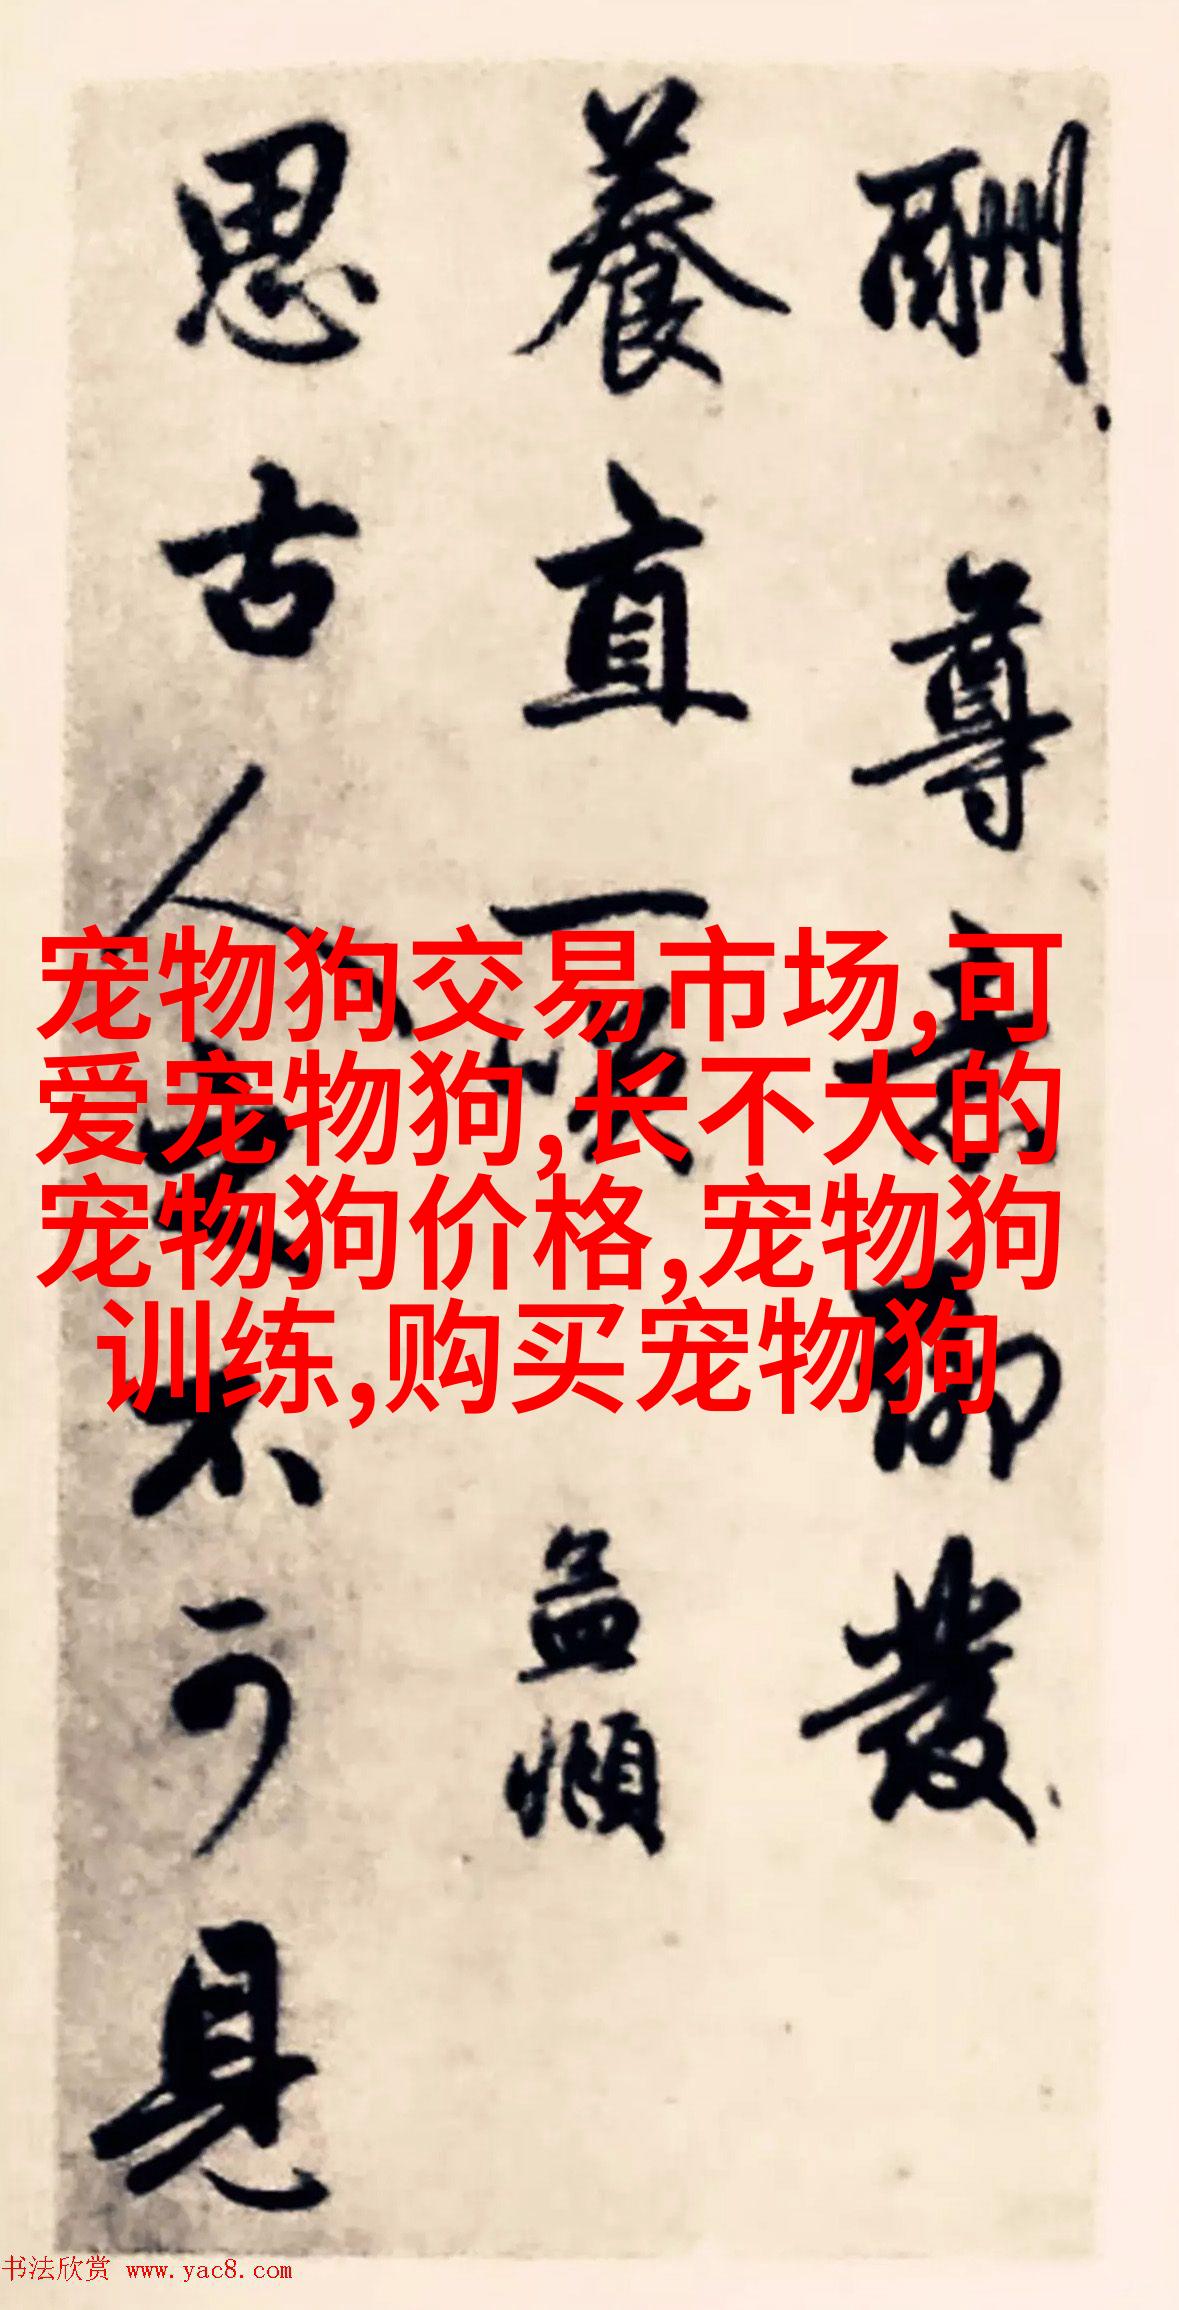 酬尊意聊發
養直一照孟頫
思古人實不可見
宠物狗交易市场,可
爱宠物狗,长不大的
宠物狗价格,宠物狗
训练,购买宠物狗
书法欣赏 www.yac8.com